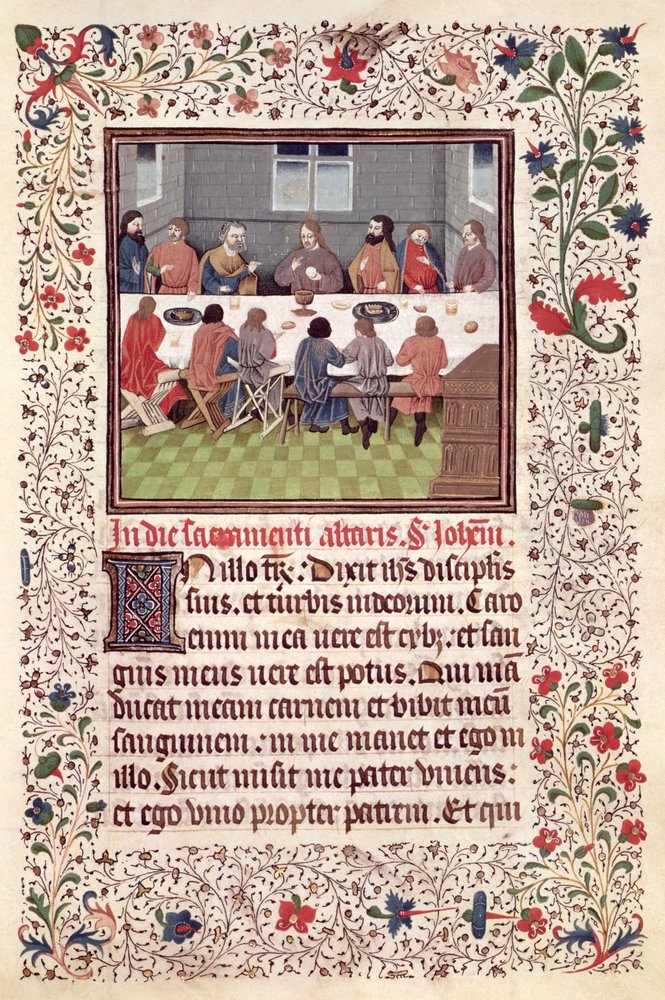 In die sacramenti altaris. Sc Johem.
In illo tpr: Dixit ihs discipls
suis. et turbis iudeorum. Caro
enim mea uere est cybz: et san
guis meus uere est potus. Qui mā
ducat meam carnem et bibit meū
sanguinem: in me manet et ego in
illo. Sicut misit me pater viuens:
et ego viuo propter patrem. Et qui